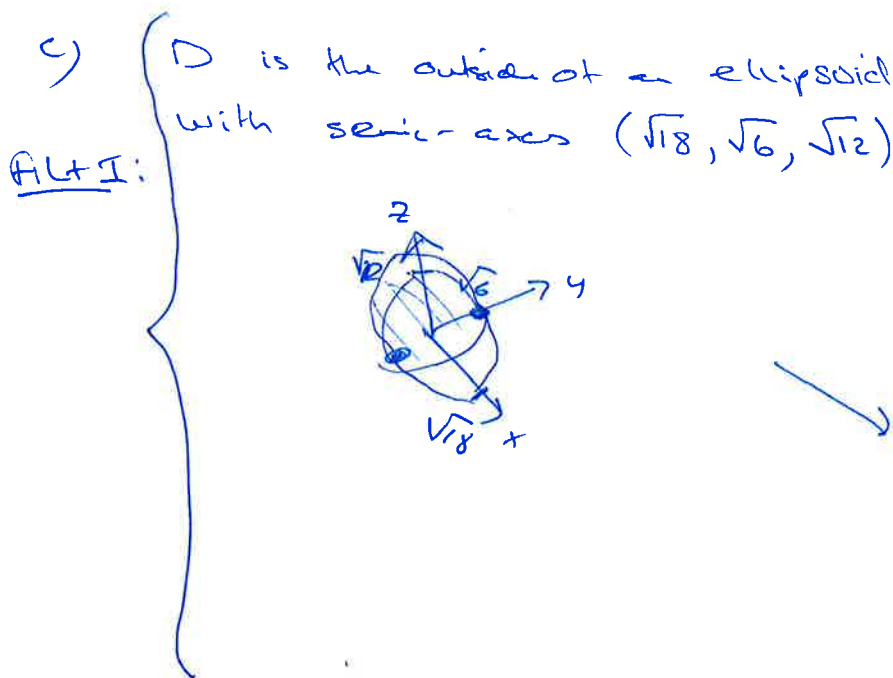 c) D is the outside of an ellipsoid
with semi-axes (√18, √6, √12)
Alt I:
z
√12
√6
y
√18 x